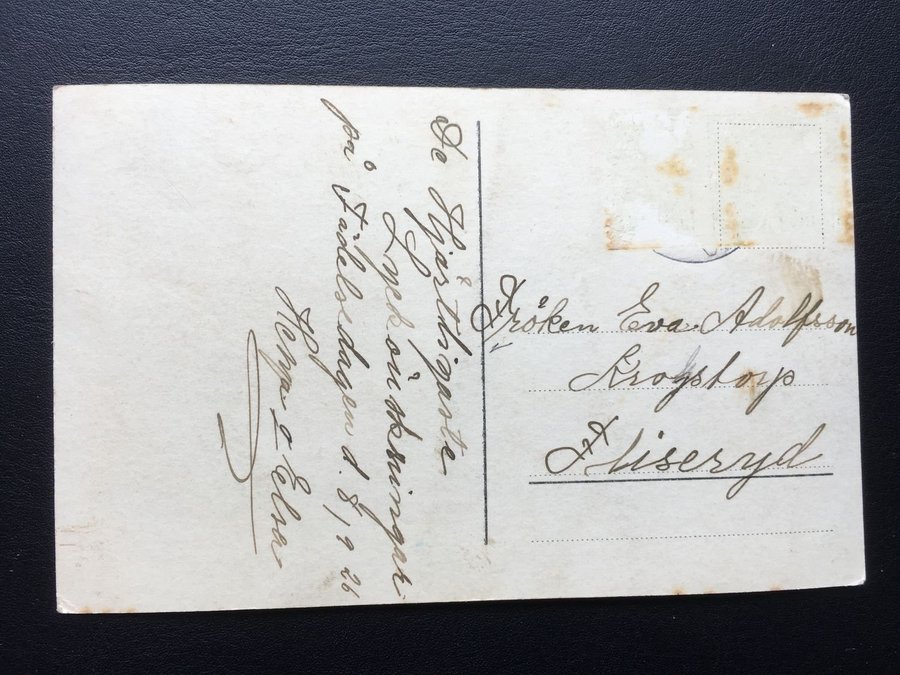 De Hjärtligaste
Lyckönskningar
på Födelsedagen d. 8/9 26
o Elsa
Fröken Eva Adolfsson
Krogstorp
Fliseryd